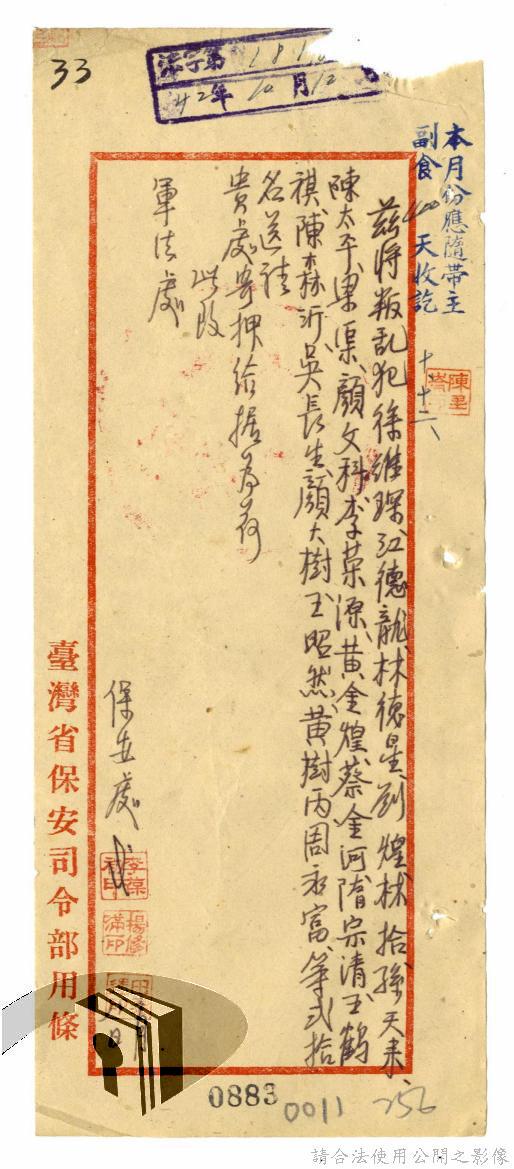 33
法字第181
42年10月12
本月份應隨帶主
副食 天收訖
十、十二、
陳
茲將叛乱犯徐維琛江德龍林德星劉煌林拾孫天来、
陳太平梁渠顏文科李荣源黃金煌蔡金河隋宗清王鶴
祺陳森沂吳長生顏大樹王昭然黃樹丙周永富等弍拾
名送請
貴處寄押給據為荷
此致
軍法處
保安處
臺灣省保安司令部用條
0883
0011
256
請合法使用公開之影像